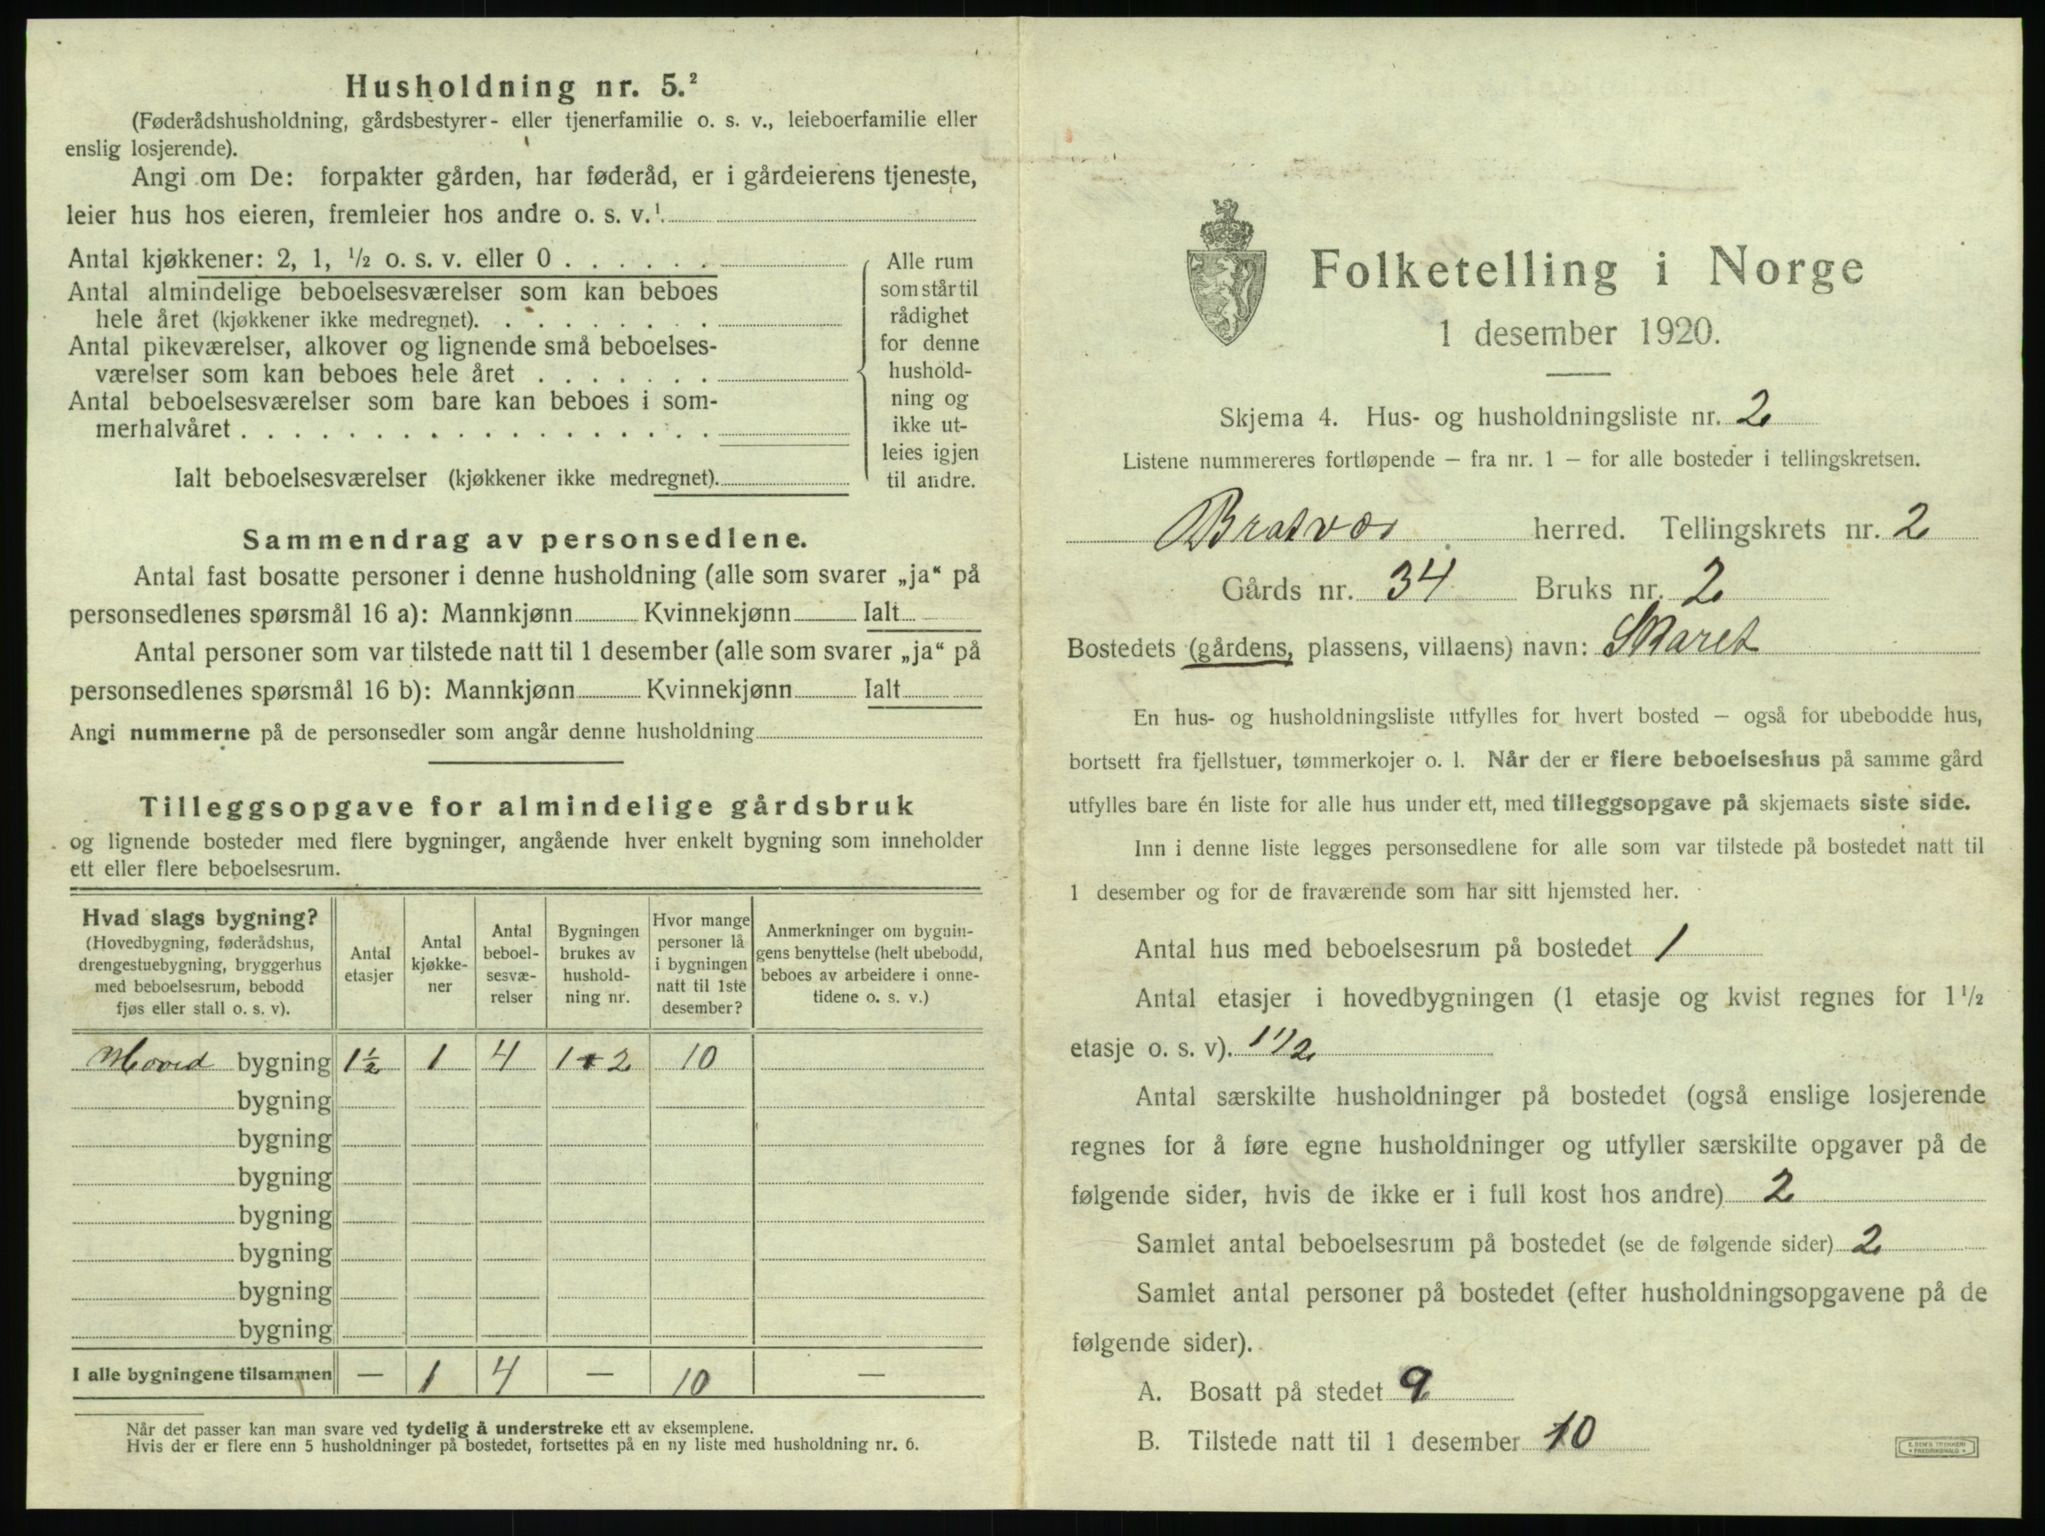 Husholdning nr. 5.²
(Føderådshusholdning, gårdsbestyrer- eller tjenerfamilie o. s. v., leieboerfamilie eller
enslig losjerende).
Angi om De: forpakter gården, har føderåd, er i gårdeierens tjeneste,
leier hus hos eieren, fremleier hos andre o. s. v.¹
Antal kjøkkener: 2, 1, ½ o. s. v. eller 0 . . . . . .
Antal almindelige beboelsesværelser som kan beboes
hele året (kjøkkener ikke medregnet). . . . . . . . .
Antal pikeværelser, alkover og lignende små beboelses-
værelser som kan beboes hele året . . . . . . .
Antal beboelsesværelser som bare kan beboes i som-
merhalvåret . . . . . . . . . . . . . . . . . .
Ialt beboelsesværelser (kjøkkener ikke medregnet).
Alle rum
som står til
rådighet
for denne
hushold-
ning og
ikke ut-
leies igjen
til andre.
Sammendrag av personsedlene.
Antal fast bosatte personer i denne husholdning (alle som svarer „ja“ på
personsedlenes spørsmål 16 a): Mannkjønn Kvinnekjønn Ialt
Antal personer som var tilstede natt til 1 desember (alle som svarer „ja“ på
personsedlenes spørsmål 16 b): Mannkjønn Kvinnekjønn Ialt
Angi nummerne på de personsedler som angår denne husholdning
Tilleggsopgave for almindelige gårdsbruk
og lignende bosteder med flere bygninger, angående hver enkelt bygning som inneholder
ett eller flere beboelsesrum.
Hvad slags bygning?
(Hovedbygning, føderådshus,
drengestuebygning, bryggerhus
med beboelsesrum, bebodd
fjøs eller stall o. s. v).
Antal
etasjer
Antal
kjøkke-
ner
Antal
beboel-
sesvæ-
relser
Bygningen
brukes av
hushold-
ning nr.
Hvor mange
personer lå
i bygningen
natt til 1ste
desember?
Anmerkninger om bygnin-
gens benyttelse (helt ubebodd,
beboes av arbeidere i onne-
tidene o. s. v.)
Hoved bygning 1½ 1 4 1+2 10
bygning
bygning
bygning
bygning
bygning
bygning
bygning
I alle bygningene tilsammen — 1 4 — 10 —
Når det passer kan man svare ved tydelig å understreke ett av eksemplene.
Hvis der er flere enn 5 husholdninger på bostedet, fortsettes på en ny liste med husholdning nr. 6.
Folketelling i Norge
1 desember 1920.
Skjema 4. Hus- og husholdningsliste nr. 2
Listene nummereres fortløpende – fra nr. 1 – for alle bosteder i tellingskretsen.
Bratvær herred. Tellingskrets nr. 2
Gårds nr. 34 Bruks nr. 2
Bostedets (gårdens, plassens, villaens) navn: Skaret
En hus- og husholdningsliste utfylles for hvert bosted – også for ubebodde hus,
bortsett fra fjellstuer, tømmerkojer o. l. Når der er flere beboelseshus på samme gård
utfylles bare én liste for alle hus under ett, med tilleggsopgave på skjemaets siste side.
Inn i denne liste legges personsedlene for alle som var tilstede på bostedet natt til
1 desember og for de fraværende som har sitt hjemsted her.
Antal hus med beboelsesrum på bostedet 1
Antal etasjer i hovedbygningen (1 etasje og kvist regnes for 1½
etasje o. s. v). 1½
Antal særskilte husholdninger på bostedet (også enslige losjerende
regnes for å føre egne husholdninger og utfyller særskilte opgaver på de
følgende sider, hvis de ikke er i full kost hos andre) 2
Samlet antal beboelsesrum på bostedet (se de følgende sider) 2
Samlet antal personer på bostedet (efter husholdningsopgavene på de
følgende sider).
A. Bosatt på stedet 9
B. Tilstede natt til 1 desember 10